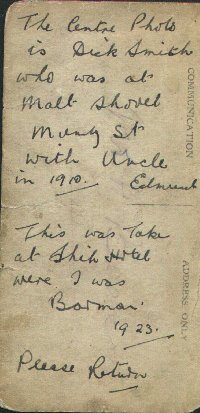 The Centre Photo
is Dick Smith
who was at
Malt Shovel
Muntz St
with Uncle
in 1910. Edmund
This was Take
at Ship Hotel
were I was
Barman
1923.
Please Return
COMMUNICATION
ADDRESS ONLY